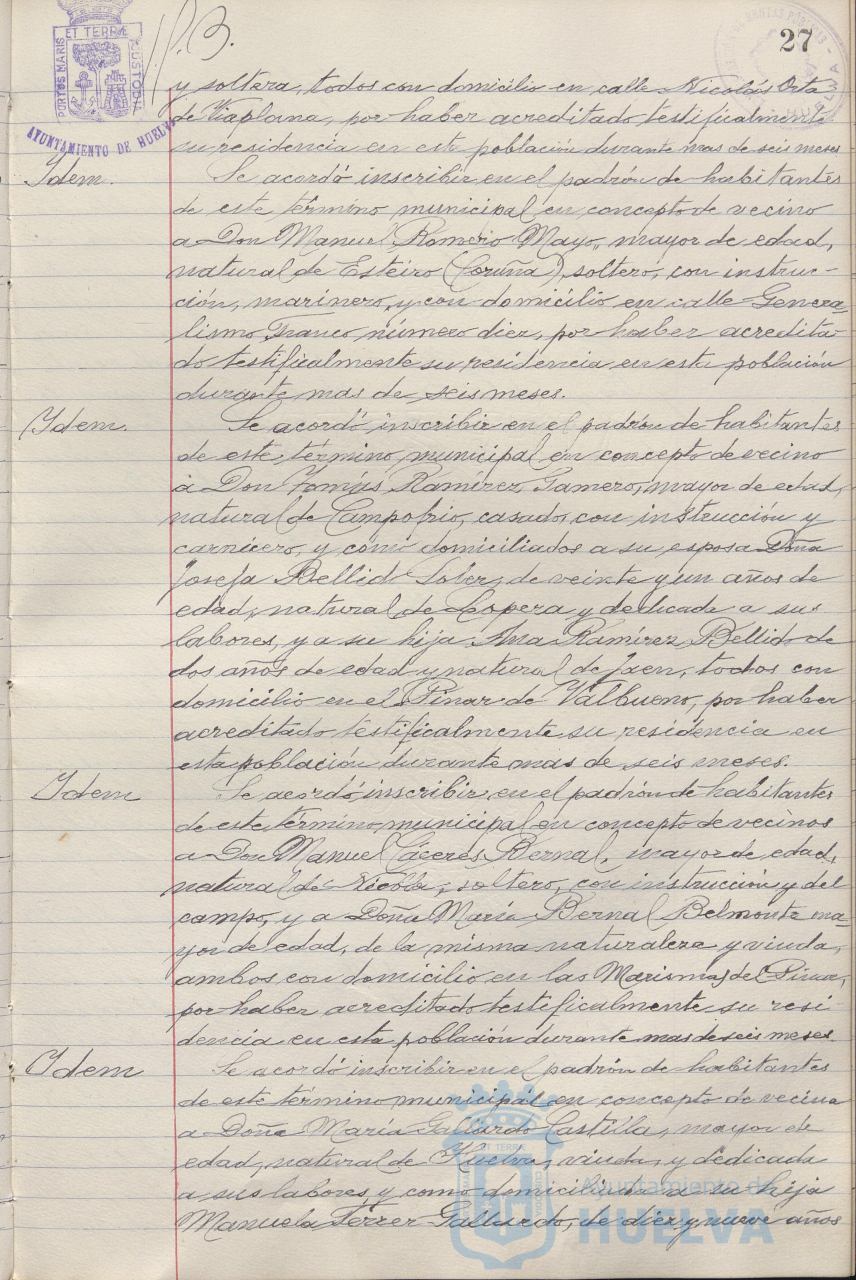 P. B.
27
ET TERRÆ
PORTUS MARIS
CUSTODIA
AYUNTAMIENTO DE HUELVA
HUELVA
y soltera, todos con domicilio en calle Nicolás Orta
de Viaplana, por haber acreditado testificalmente
su residencia en esta población durante mas de seis meses
Idem.
Se acordó inscribir en el padrón de habitantes
de este término municipal en concepto de vecino
a Don Manuel Romero Mayo, mayor de edad,
natural de Esteiro (Coruña), soltero, con instruc-
ción, marinero, y con domicilio en calle Genera-
lísmo Franco número diez, por haber acredita-
do testificalmente su residencia en esta población
durante mas de seis meses.
Idem.
Se acordó inscribir en el padrón de habitantes
de este término municipal en concepto de vecino
a Don Tomás Ramírez Gamero, mayor de edad,
natural de Campofrio, casado, con instrucción y
carnicero, y como domiciliados a su esposa Doña
Josefa Bellido de veinte y un años de
edad, natural de Lopera y dedicada a sus
labores, y a su hija Ana Ramírez Bellido de
dos años de edad y natural de Jaen, todos con
domicilio en el Pinar de Valbueno, por haber
acreditado testificalmente su residencia en
esta población durante mas de seis meses.
Idem
Se acordó inscribir en el padrón de habitantes
de este término municipal en concepto de vecinos
a Don Manuel Cáceres Bernal, mayor de edad,
natural de Niebla, soltero, con instrucción y del
campo, y a Doña María Bernal Belmonte ma-
yor de edad, de la misma naturaleza y viuda,
ambos con domicilio en las Marismas del Pinar,
por haber acreditado testificalmente su resi-
dencia en esta población durante mas de seis meses.
Idem
Se acordó inscribir en el padrón de habitantes
de este término municipal en concepto de vecina
a Doña María Gallardo Castilla, mayor de
edad, natural de Huelva, viuda, y dedicada
a sus labores, y como domiciliada a su hija
Manuela Ferrer Gallardo, de diez y nueve años
Ayuntamiento de
HUELVA